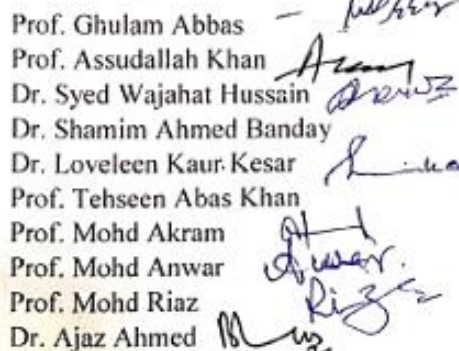 Prof. Ghulam Abbas -
Prof. Assudallah Khan
Dr. Syed Wajahat Hussain
Dr. Shamim Ahmed Banday
Dr. Loveleen Kaur Kesar
Prof. Tehseen Abas Khan
Prof. Mohd Akram
Prof. Mohd Anwar Anwar.
Prof. Mohd Riaz
Dr. Ajaz Ahmed